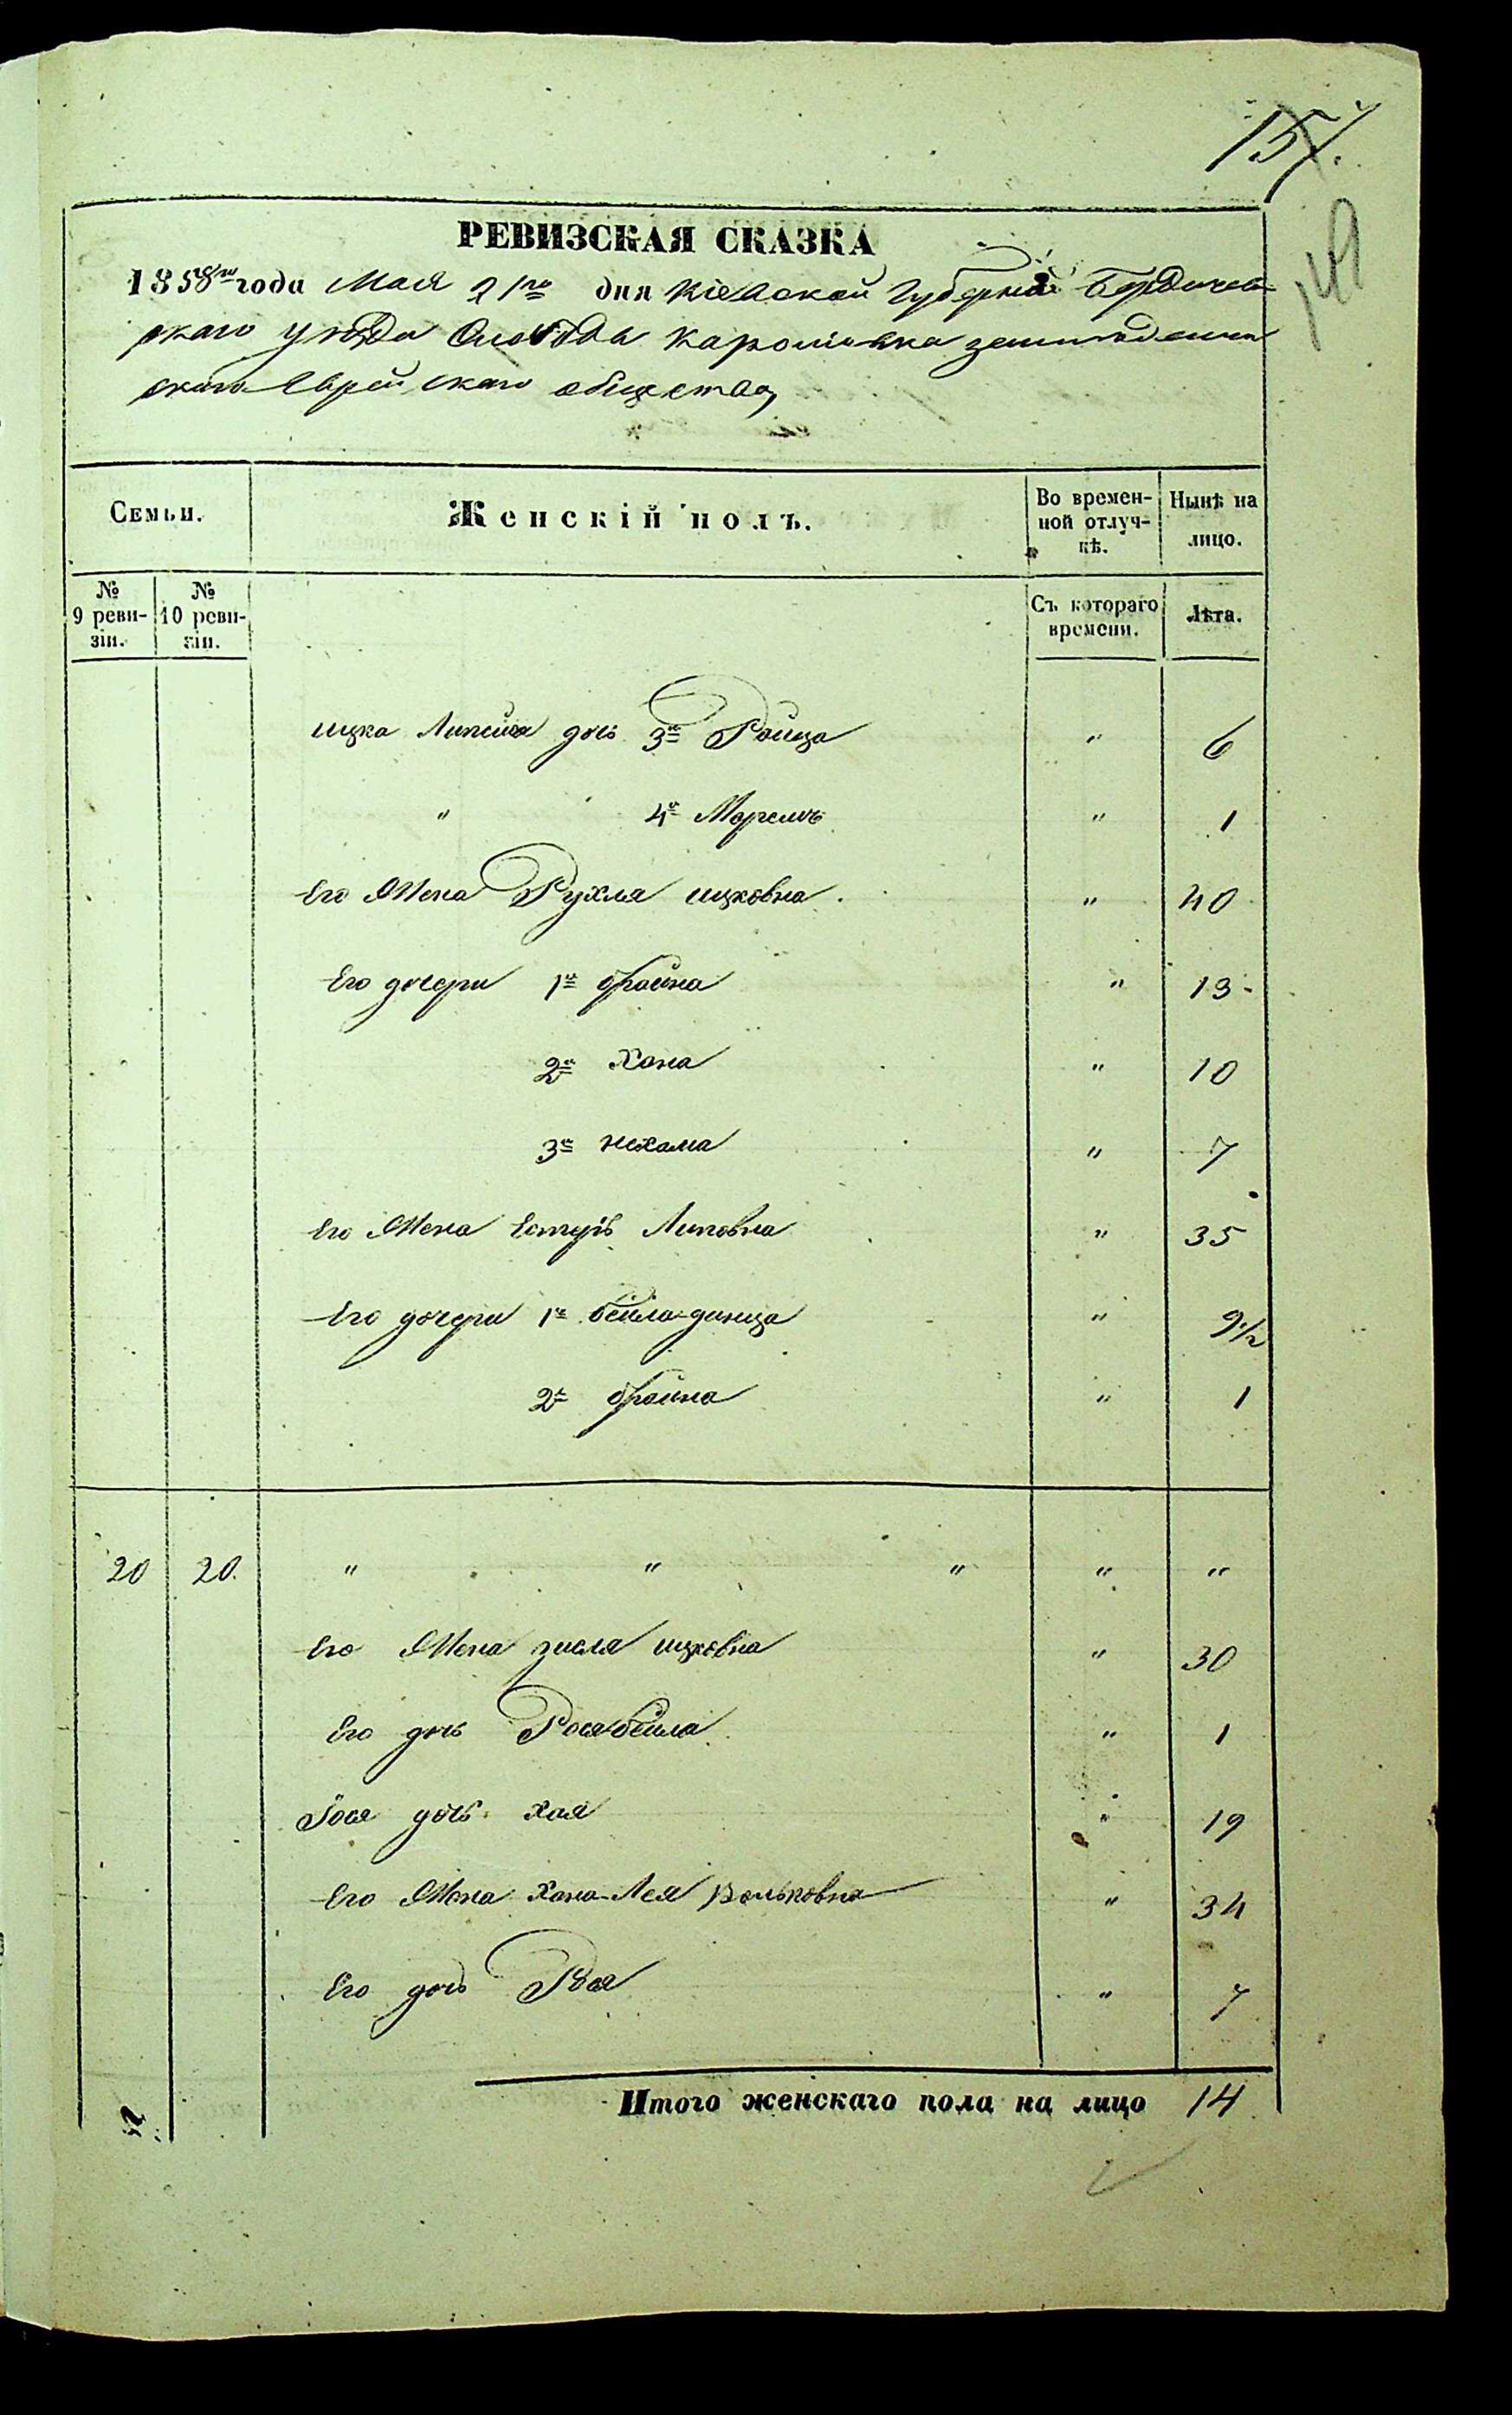 157.
149
РЕВИЗСКАЯ СКАЗКА
1858го года Мая 21го дня Кіевской Губерніи Бердичев-
скаго уѣзда Слобода Каролінвка земледельче
скаго Еврейскаго общества,
Семьи.
Женскій полъ.
Во времен-
ной отлуч-
кѣ.
Нынѣ на
лицо.
№
9 реви-
зіи.
№
10 реви-
зіи.
Съ котораго
времени.
Лѣта.
ицка Липы дочь 3я Ройца " 6
" 4я " 1
Его Жена Рухля ицковна. " 40
Его дочери 1я брайна " 13
2я Хана " 10
3я нехама " 7
Его Жена Естеръ Липовна " 35
Его дочери 1я бейла-диница " 9½
2я брайна " 1
20 20. " " " " "
Его Жена зисля ицковна " 30
Его дочь Росябейла " 1
Іося дочь хая " 19
Его Жена Хана-Лея Вольковна " 34
Его дочь Рося " 7
Итого женскаго пола на лицо 14